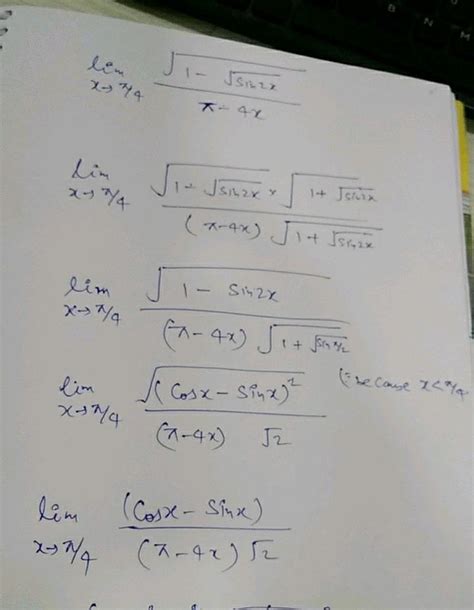 lim x→π/4 √(1 - √sin2x) / π - 4x
lim x→π/4 √(1 - √sin2x) × √(1 + √sin2x) / (π-4x) √(1 + √sin2x)
lim x→π/4 √(1 - sin2x) / (π - 4x) √(1 + √sin π/2)
lim x→π/4 √(Cosx - Sinx)² / (π-4x) √2 (∵ because x<π/4
lim x→π/4 (Cosx - Sinx) / (π - 4x) √2